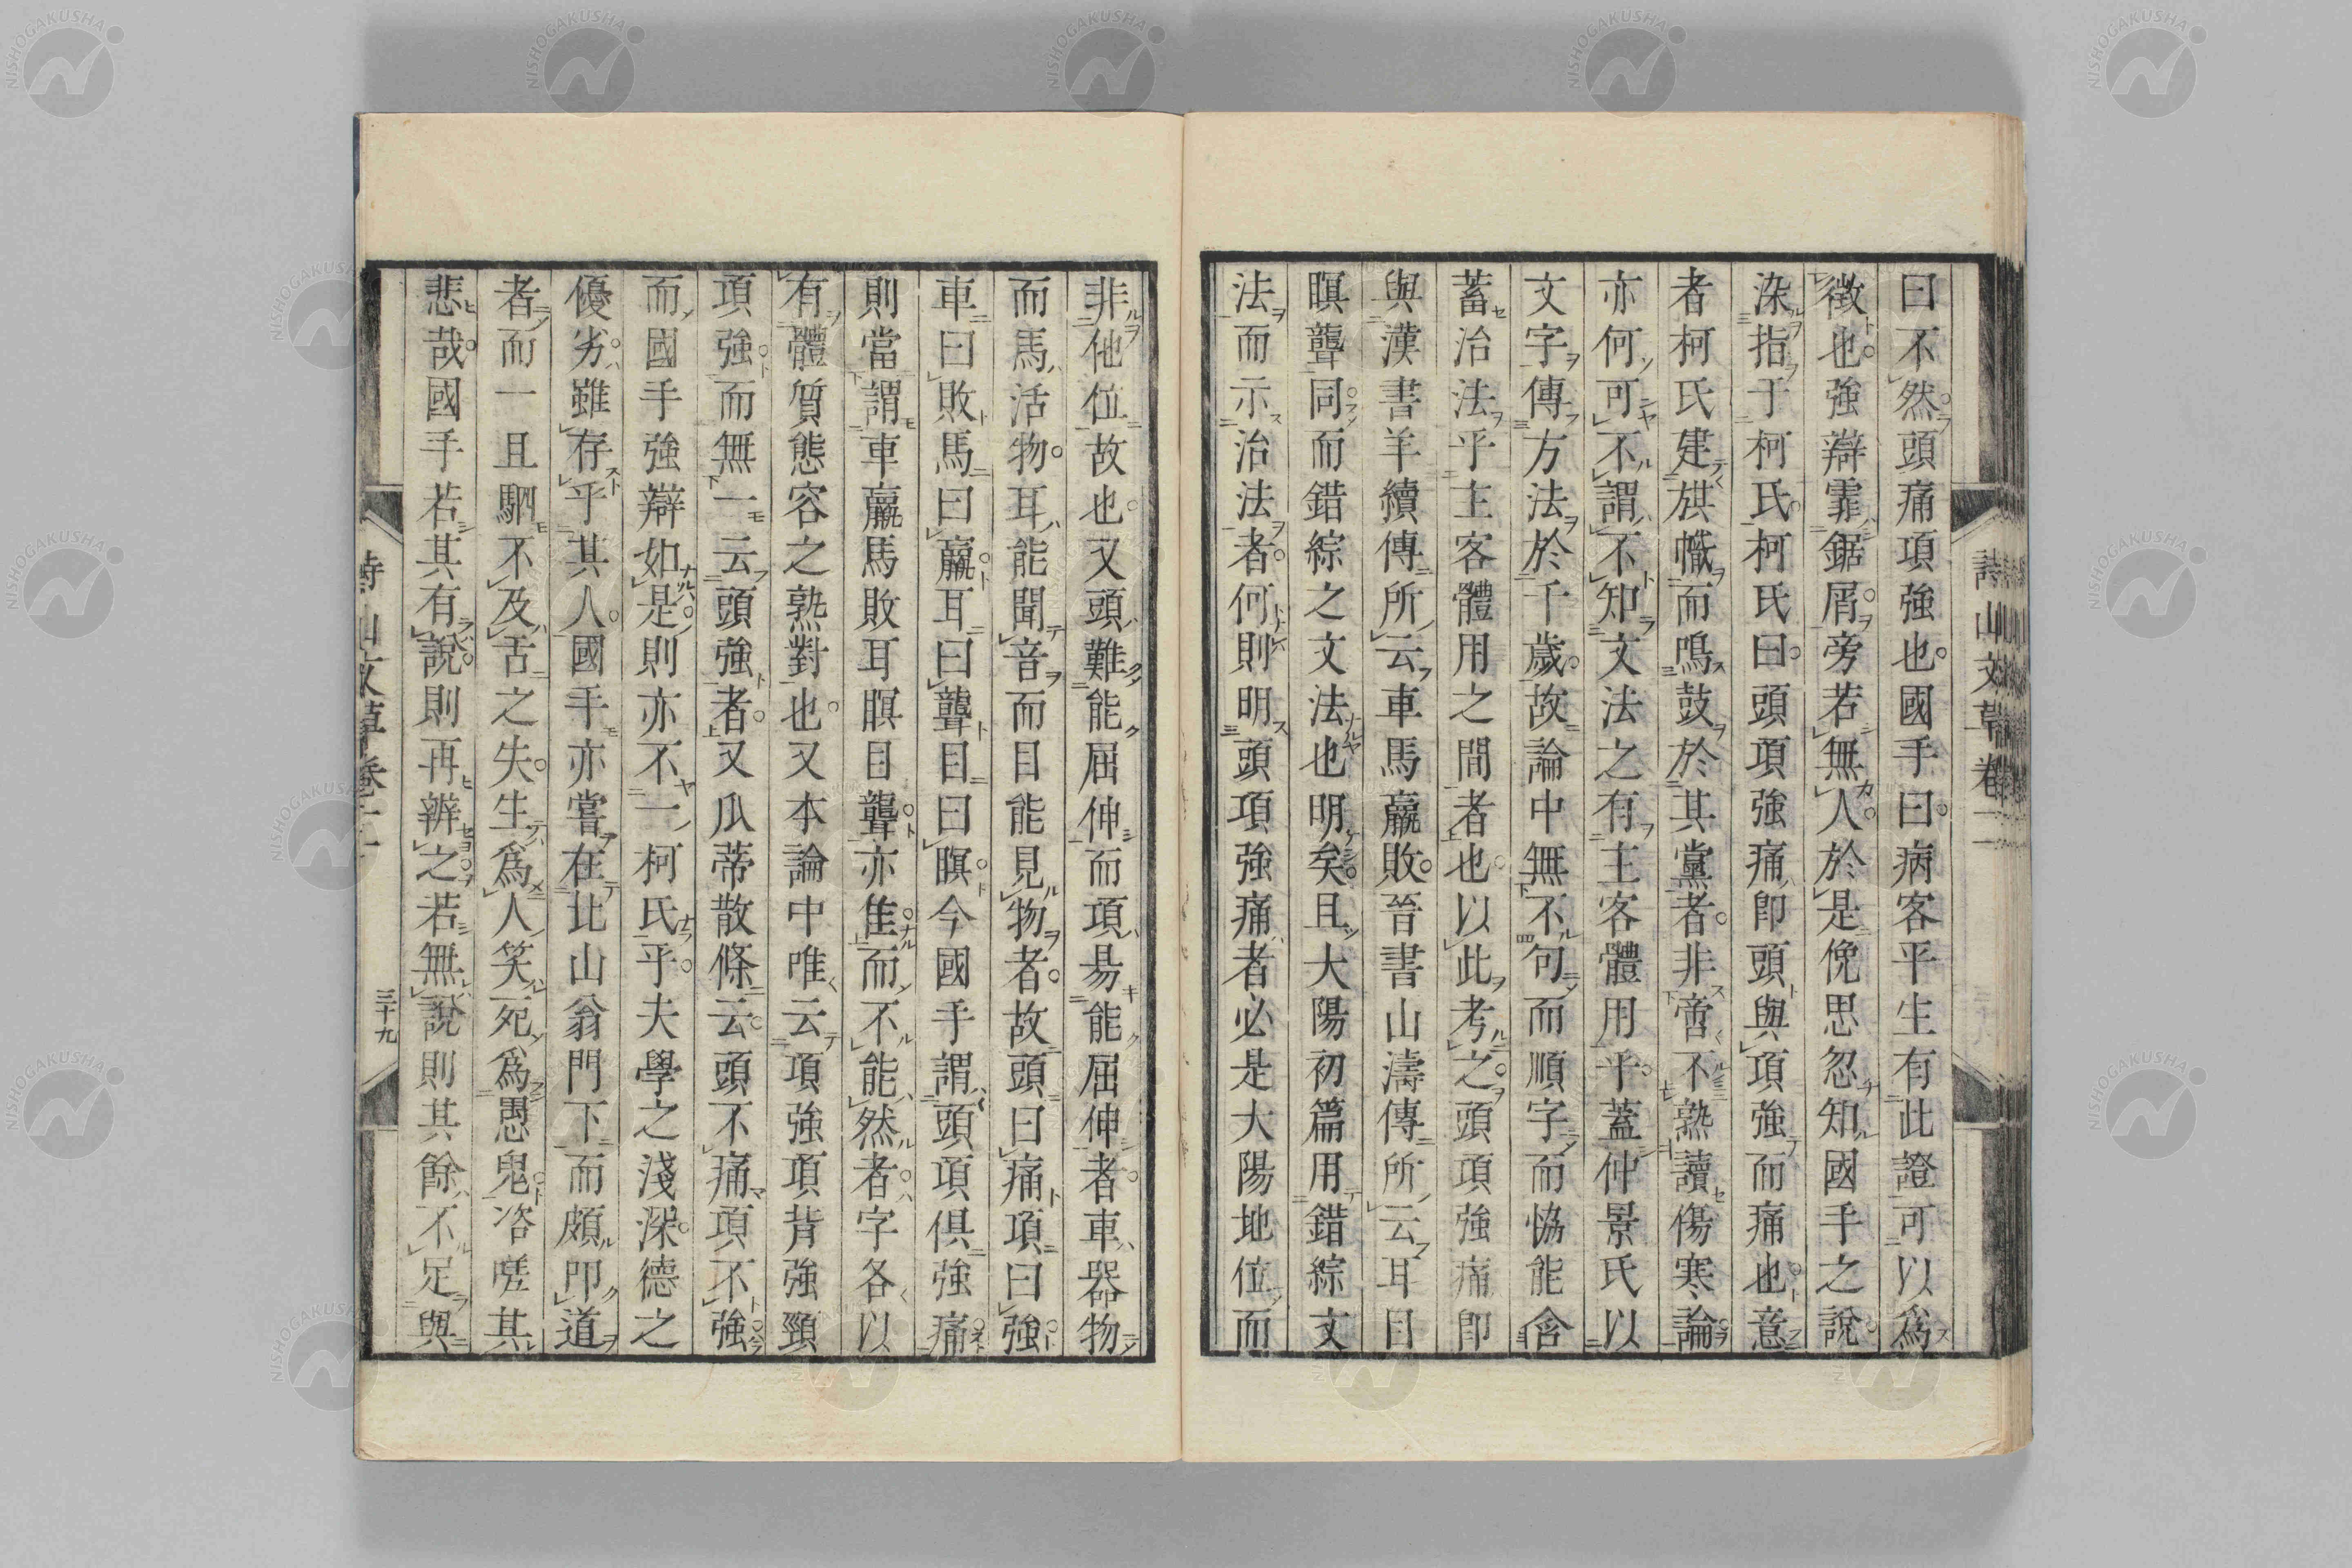 曰不然頭痛項強也國手曰病客平生有此證可以爲
徵也強辯霏鋸屑旁若無人於是俛思忽知國手之說
染指于柯氏柯氏曰頭項強痛即頭與項強而痛也意
者柯氏建旗幟而鳴鼓於其黨者非啻不熟讀傷寒論
亦何可不謂不知文法之有主客體用乎蓋仲景氏以
文字傳方法於千歲故論中無不句而順字而恊能含
蓄治法乎主客體用之間者也以此考之頭項強痛即
與漢書羊續傳所云車馬羸敗晉書山濤傳所云耳目
瞑聾同而錯綜之文法也明矣且大陽初篇用錯綜文
法而示治法者何則明頭項強痛者必是大陽地位而
詩山文草卷二
非他位故也又頭難能屈伸而項易能屈伸者車器物
而馬活物耳能聞音而目能見物者故頭曰痛項曰強
車曰敗馬曰羸耳曰聾目曰瞑今國手謂頭項俱強痛
則當謂車羸馬敗耳瞑目聾亦隹而不能然者字各以
有體質態容之熟對也又本論中唯云項強項背強頸
項強而無一云頭強者又瓜蒂散條云頭不痛項不強
而國手強辯如是則亦不一柯氏乎夫學之淺深德之
優劣雖存乎其人國手亦嘗在北山翁門下而頗卽道
者而一且駟不及舌之失生爲人笑死爲愚鬼咨嗟其
悲哉國手若其有說則再辨之若無說則其餘不足與
詩山文草卷二
三十九